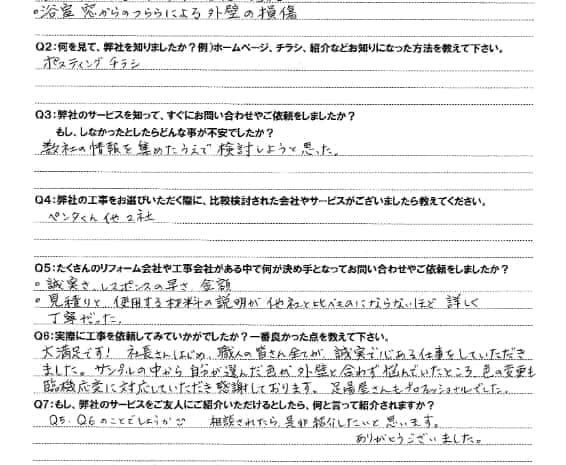 ○浴室 窓からのつららによる外壁の損傷
Q2:何を見て、弊社を知りましたか？例）ホームページ、チラシ、紹介などお知りになった方法を教えて下さい。
ポスティングチラシ
Q3:弊社のサービスを知って、すぐにお問い合わせやご依頼をしましたか？
もし、しなかったとしたらどんな事が不安でしたか？
数社の情報を集めたうえで検討しようと思った。
Q4:弊社の工事をお選びいただく際に、比較検討された会社やサービスがございましたら教えてください。
ペンタくん他2社
Q5:たくさんのリフォーム会社や工事会社がある中で何が決め手となってお問い合わせやご依頼をしましたか？
○誠実さ、レスポンスの早さ、金額
○見積りと、使用する材料の説明が他社と比べものにならないほど 詳しく
丁寧だった。
Q6:実際に工事を依頼してみていかがでしたか？一番良かった点を教えて下さい。
大満足です！ 社長さんはじめ、職人の皆さん全てが、誠実で心ある仕事をしていただき
ました。サンプルの中から自分が選んだ色が外壁と合わず悩んでいたところ、色の変更も
臨機応変に対応していただき感謝しております。足場屋さんもプロフェッショナルでした。
Q7:もし、弊社のサービスをご友人にご紹介いただけるとしたら、何と言って紹介されますか？
Q5、Q6のことでしょうか 相談されたら、是非紹介したいと思います。
ありがとうございました。